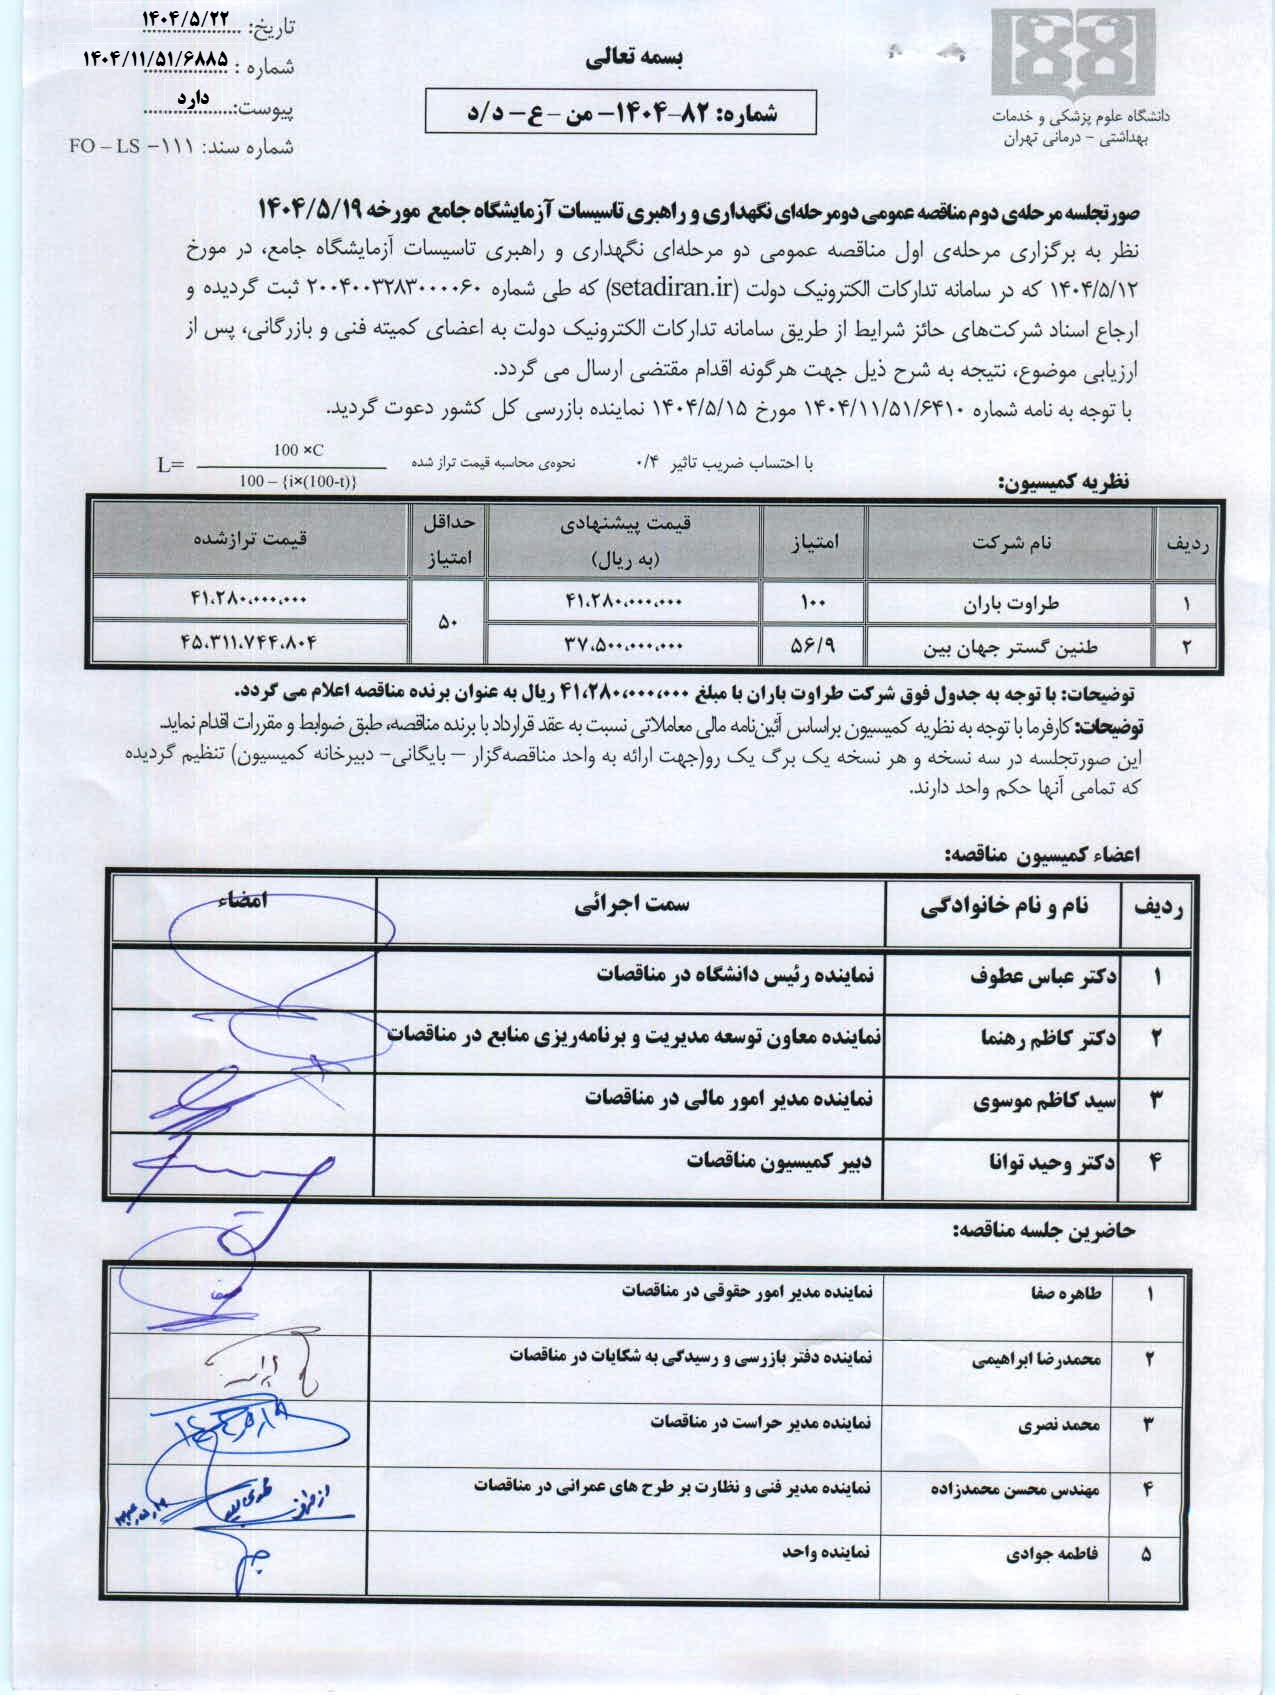 تاریخ: ۱۴۰۴/۵/۲۲
شماره : ۱۴۰۴/۱۱/۵۱/۶۸۸۵
پیوست: دارد
شماره سند: FO – LS –۱۱۱
دانشگاه علوم پزشکی و خدمات
بهداشتی – درمانی تهران
بسمه تعالی
شماره: ۸۲–۱۴۰۴– من –ع– د/د
صورتجلسه مرحله‌ی دوم مناقصه عمومی دومرحله‌ای نگهداری و راهبری تاسیسات آزمایشگاه جامع مورخه ۱۴۰۴/۵/۱۹
نظر به برگزاری مرحله‌ی اول مناقصه عمومی دو مرحله‌ای نگهداری و راهبری تاسیسات آزمایشگاه جامع، در مورخ
۱۴۰۴/۵/۱۲ که در سامانه تدارکات الکترونیک دولت (setadiran.ir) که طی شماره ۲۰۰۴۰۰۳۲۸۳۰۰۰۰۶۰ ثبت گردیده و
ارجاع اسناد شرکت‌های حائز شرایط از طریق سامانه تدارکات الکترونیک دولت به اعضای کمیته فنی و بازرگانی، پس از
ارزیابی موضوع، نتیجه به شرح ذیل جهت هرگونه اقدام مقتضی ارسال می گردد.
با توجه به نامه شماره ۱۴۰۴/۱۱/۵۱/۶۴۱۰ مورخ ۱۴۰۴/۵/۱۵ نماینده بازرسی کل کشور دعوت گردید.
با احتساب ضریب تاثیر ۰/۴ نحوه‌ی محاسبه قیمت تراز شده L= 100 ×C
100 – {i×(100-t)}
نظریه کمیسیون:
ردیف نام شرکت امتیاز قیمت پیشنهادی (به ریال) حداقل امتیاز قیمت ترازشده
۱ طراوت باران ۱۰۰ ۴۱،۲۸۰،۰۰۰،۰۰۰ ۵۰ ۴۱،۲۸۰،۰۰۰،۰۰۰
۲ طنین گستر جهان بین ۵۶/۹ ۳۷،۵۰۰،۰۰۰،۰۰۰ ۴۵،۳۱۱،۷۴۴،۸۰۴
توضیحات: با توجه به جدول فوق شرکت طراوت باران با مبلغ ۴۱،۲۸۰،۰۰۰،۰۰۰ ریال به عنوان برنده مناقصه اعلام می گردد.
توضیحات: کارفرما با توجه به نظریه کمیسیون براساس آئین‌نامه مالی معاملاتی نسبت به عقد قرارداد با برنده مناقصه، طبق ضوابط و مقررات اقدام نماید.
این صورتجلسه در سه نسخه و هر نسخه یک برگ یک رو(جهت ارائه به واحد مناقصه‌گزار – بایگانی– دبیرخانه کمیسیون) تنظیم گردیده
که تمامی آنها حکم واحد دارند.
اعضاء کمیسیون مناقصه:
ردیف نام و نام خانوادگی سمت اجرائی امضاء
۱ دکتر عباس عطوف نماینده رئیس دانشگاه در مناقصات
۲ دکتر کاظم رهنما نماینده معاون توسعه مدیریت و برنامه‌ریزی منابع در مناقصات
۳ سید کاظم موسوی نماینده مدیر امور مالی در مناقصات
۴ دکتر وحید توانا دبیر کمیسیون مناقصات
حاضرین جلسه مناقصه:
۱ طاهره صفا نماینده مدیر امور حقوقی در مناقصات
۲ محمدرضا ابراهیمی نماینده دفتر بازرسی و رسیدگی به شکایات در مناقصات
۳ محمد نصری نماینده مدیر حراست در مناقصات
۴ مهندس محسن محمدزاده نماینده مدیر فنی و نظارت بر طرح های عمرانی در مناقصات
۵ فاطمه جوادی نماینده واحد